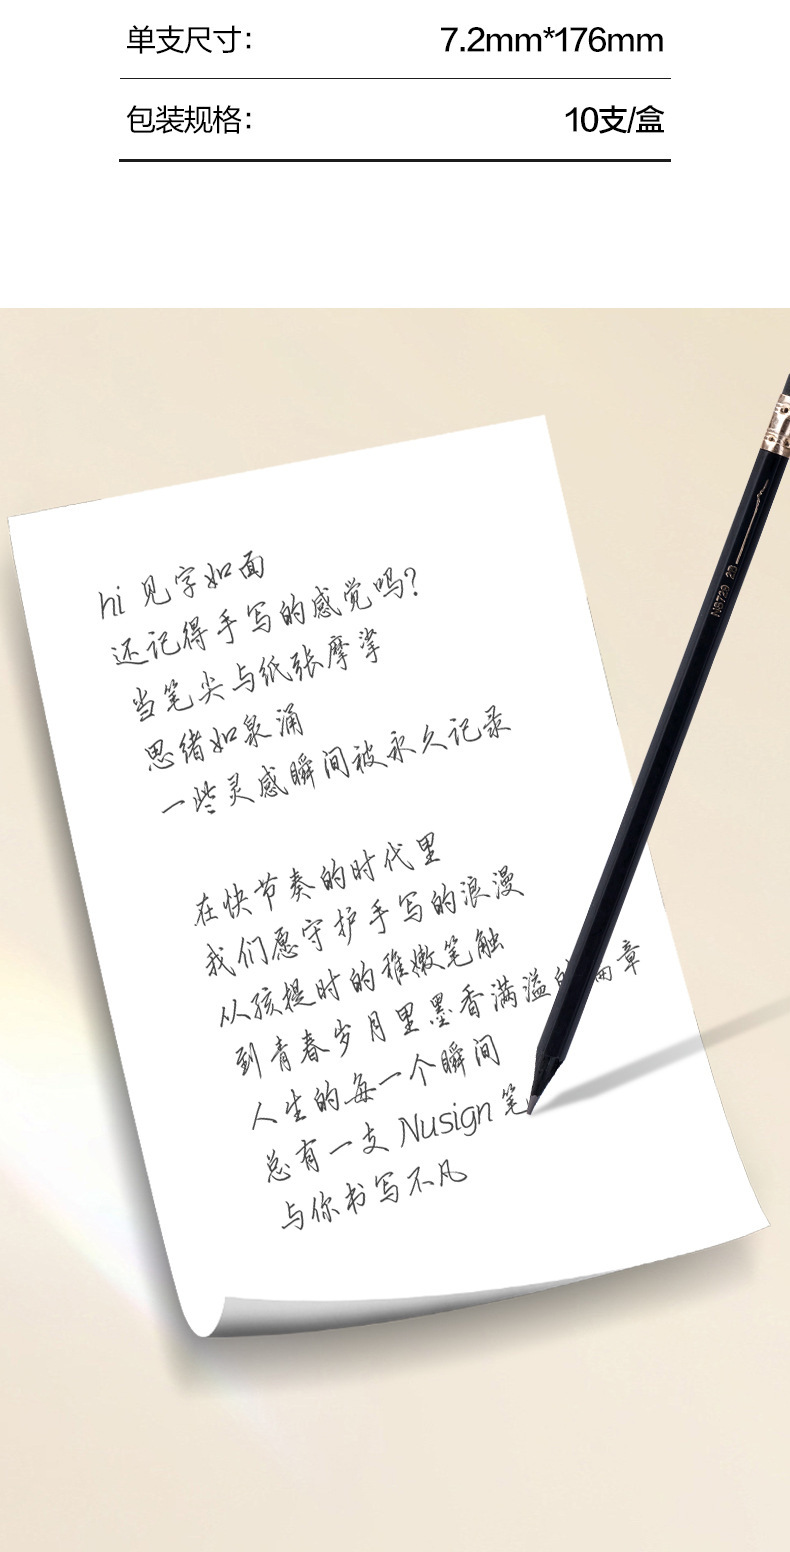 单支尺寸: 7.2mm*176mm
包装规格: 10支/盒
hi 见字如面
还记得手写的感觉吗?
当笔尖与纸张摩挲
思绪如泉涌
一些灵感瞬间被永久记录
在快节奏的时代里
我们愿守护手写的浪漫
从孩提时的稚嫩笔触
到青春岁月里墨香满溢的 章
人生的每一个瞬间
总有一支 Nusign 笔
与你书写不凡
NS729 2B